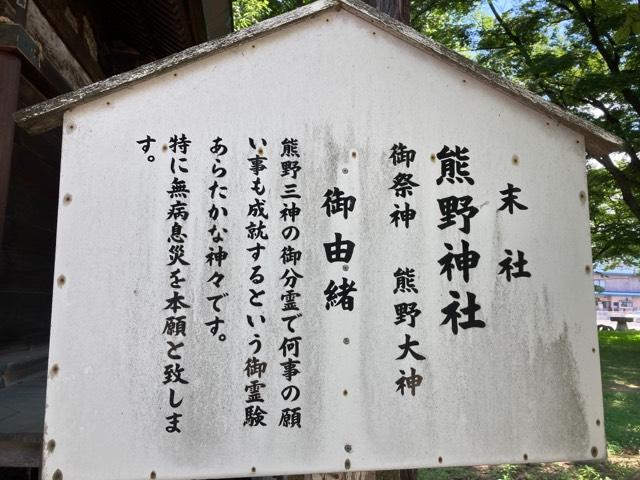 末社
熊野神社
御祭神 熊野大神
御由緒
熊野三神の御分霊で何事の願
い事も成就するという御霊験
あらたかな神々です。
特に無病息災を本願と致しま
す。